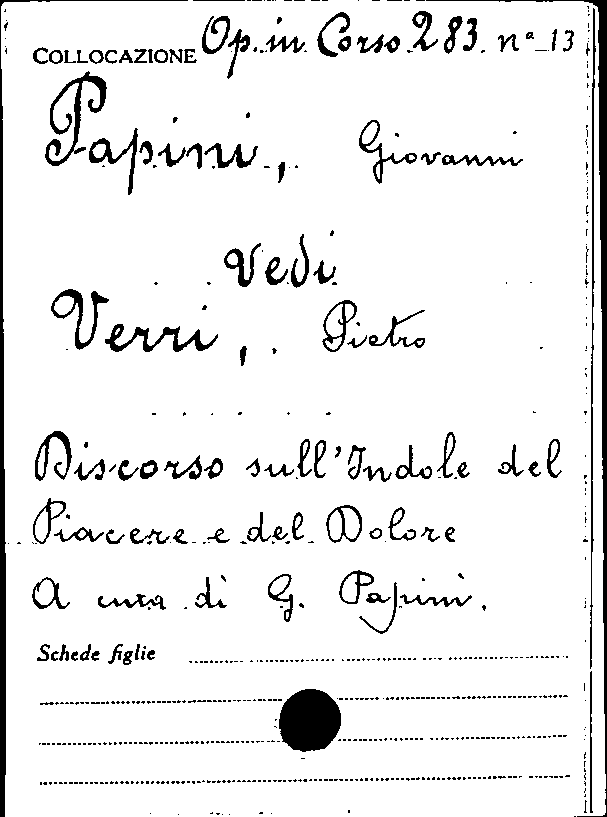 COLLOCAZIONE Op. in Corso 283. nº 13
Papini, Giovanni
Vedi
Verri, Pietro
Discorso sull'Indole del
Piacere e del Dolore
A cura di G. Papini.
Schede figlie